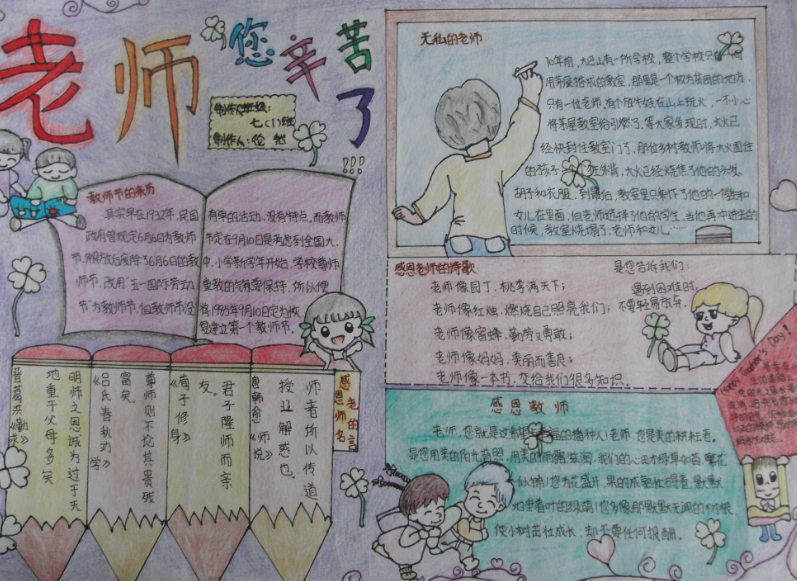 老师您辛苦了!!!
制作班级:
七(1)班
制作人:
教师节的来历
其实早在1932年,民国
政府曾规定6月6日为教师
节,解放后废除了6月6日的教
师节,改用"五一国际劳动
节"为教师节,但教师节没
有单独的活动,没有特点,而教师
节定在9月10日是考虑到全国大、
中、小学新学年开始,学校尊师
重教的气氛要保持,所以便
1985年9月10日定为恢
复建立第一个教师节。
无私的老师
10年前,大巴山有一所学校,整个学校只有
用茅屋搭成的教室,那里是一个极为贫困的地方。
只有一位老师,有个放牛娃在山上玩火,一不小心
将茅屋教室给引燃了。等大家发现时,大火已
经快封住教室门了,那位乡村教师将大火围住
的孩子
大火已经烧焦了他的头发、
胡子和衣服,到最后,教室里只剩下了他的一个
女儿在里面,但老师选择了他的学生,当他再冲进去的
时候,教室烧塌了,老师和女儿……
感恩老师的诗歌
老师像园丁,桃李满天下;
老师像红烛,燃烧自己照亮我们;
老师像蜜蜂,勤劳又勇敢;
老师像妈妈,美丽而善良;
老师像一本书,交给我们很多知识。
是您告诉我们:
遇到困难时,
不要轻易放弃。
感恩老师的名言
师者所以传道
授业解惑也。
韩愈《师说》
君子隆师而亲
友。
《荀子·修身》
尊师则不论其贵贱
富矣。
《吕氏春秋·劝学》
明师之恩诚为过于天
地重于父母多矣
晋葛洪《勤求》
感恩教师
老师,您就是
的播种人!老师,您是美的耕耘者。
是您用美的阳光普照,用美的雨露滋润,我们的心田才绿草如茵,繁花
似锦!您为花的盛开,果的成熟忙碌着,默默
地垂着叶的绿荫!您多像那默默无闻的树根,
使小树茁壮成长,却不要任何报酬。
Happy Teacher's Day!